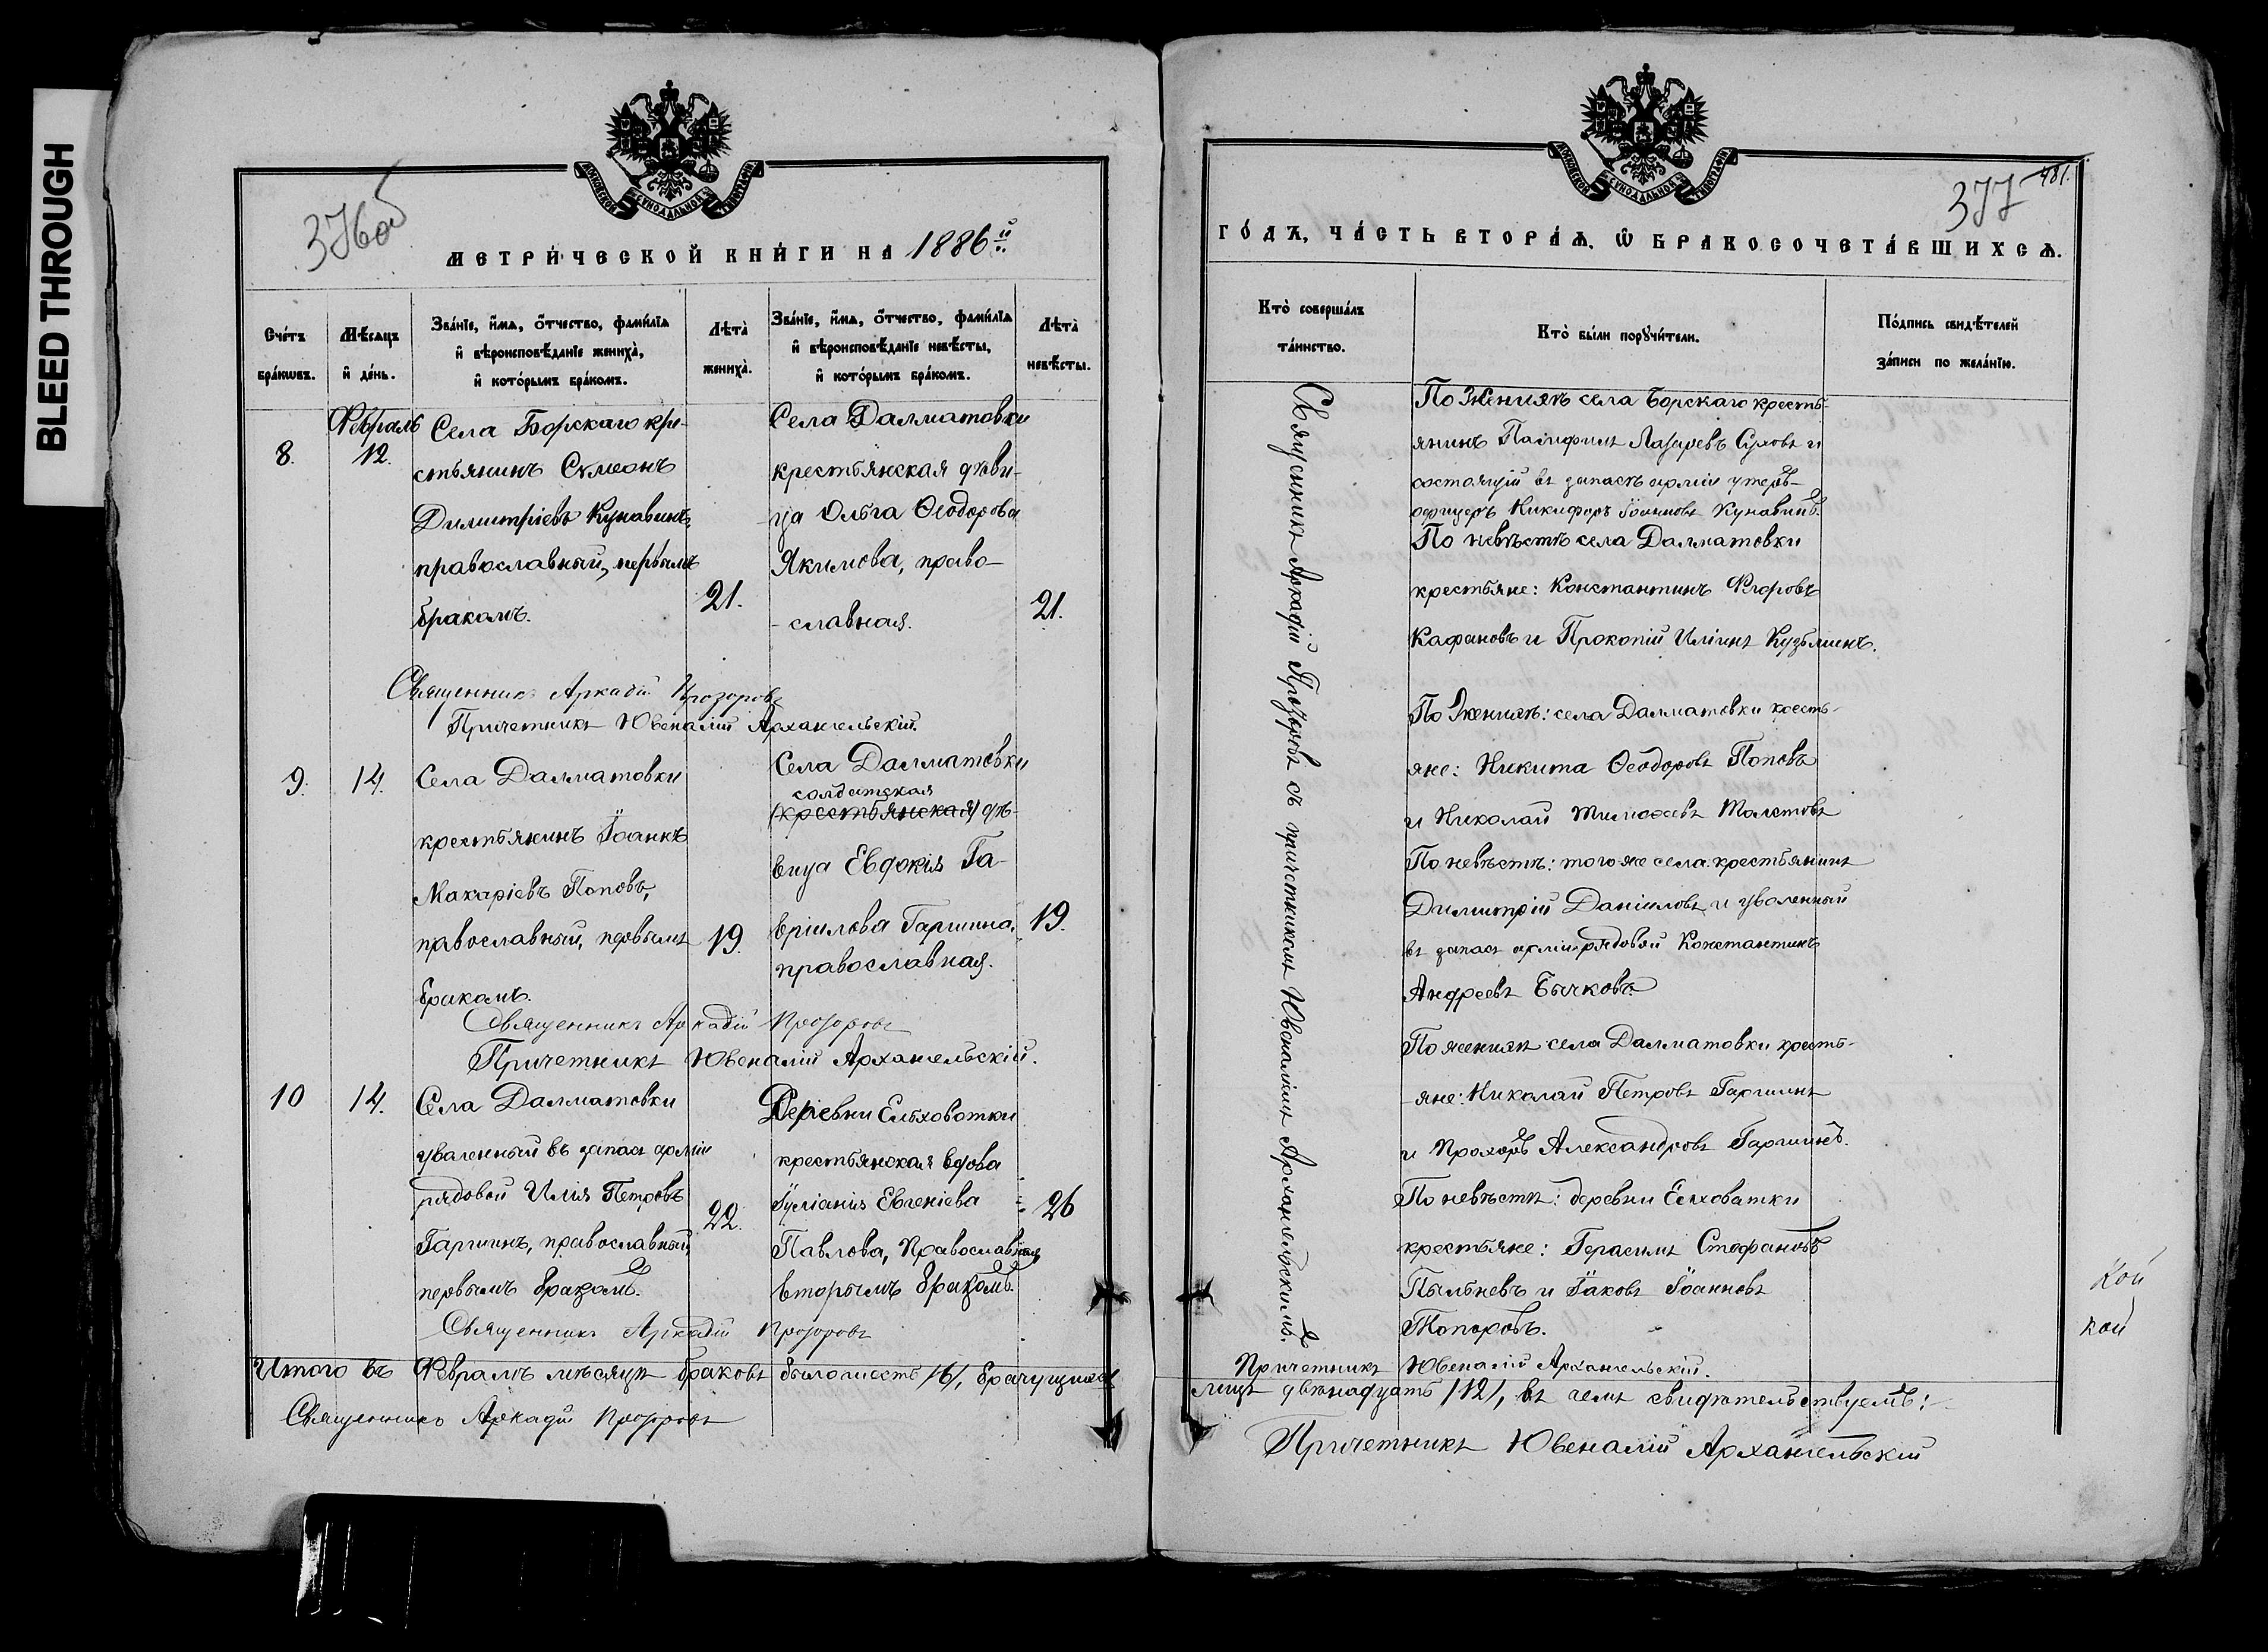 BLEED THROUGH
376об
МЕТРИ́ЧЕСКОЙ КНИ́ГИ НА 1886й
Сче́тъ бра́кωвъ.
Мѣ́сяцъ и҆ де́нь.
Зва́нїе, и҆́мѧ, ѻ҆́тчество, фами́лїѧ
и҆ вѣроисповѣ́данїе жениха̀,
и҆ кото́рымъ бра́комъ.
Лѣта̀ жениха̀.
Зва́нїе, и҆́мѧ, ѻ҆́тчество, фами́лїѧ
и҆ вѣроисповѣ́данїе невѣ́сты,
и҆ кото́рымъ бра́комъ.
Лѣта̀ невѣ́сты.
8.
Февраль
12.
Села Борскаго кре-
стьянинъ Сѵмеонъ
Димитріевъ Кунавинъ,
православный, первымъ
бракомъ.
21.
Села Далматовки
крестьянская дѣви-
ца Ольга Ѳеодорова
Якимова, право-
- славная.
21.
Священникъ Аркадій Прозоровъ
Причетникъ Ювеналій Архангельскій.
9.
14.
Села Далматовки
крестьянинъ Іоаннъ
Макаріевъ Поповъ,
православный, первымъ
бракомъ.
19.
Села Далматовки
солдатская
(крестьянская) дѣ-
вица Евдокія Га-
вріилова Гаршина,
православная.
19.
Священникъ Аркадій Прозоровъ
Причетникъ Ювеналій Архангельскій.
10
14.
Села Далматовки
уволенный въ запасъ арміи
рядовой Илія Петровъ
Гаршинъ, православный,
первымъ бракомъ.
22.
Деревни Ельховатки
крестьянская вдова
Іуліанія Евгеніева
Павлова, Православная
вторымъ бракомъ.
26
Священникъ Аркадій Прозоровъ
Итого въ Февралѣ мѣсяцѣ браковъ было шесть /6/, брачущихся
Священникъ Аркадій Прозоровъ
481.
377
ГО́ДА, ЧА́СТЬ ВТОРА́Ѧ, Ѡ҆ БРАКОСОЧЕТА́ВШИХСѦ.
Кто̀ соверша́лъ
та́инство.
Кто̀ бы́ли порꙋчи́тели.
По́дпись свидѣ́телей
за́писи по жела́нїю.
Священникъ Аркадій Прозоровъ съ причетникомъ Ювеналіемъ Архангельскимъ.
По Женихѣ села Борскаго кресть-
янинъ Памфилъ Лазаревъ Суховъ и
состоящій въ запасѣ арміи унтеръ-
офицеръ Никифоръ Іоанновъ Кунавинъ.
По невѣстѣ села Далматовки
крестьяне: Константинъ Ѳедоровъ
Кафановъ и Прокопій Иліинъ Кузьминъ.
По Женихѣ: села Далматовки кресть-
яне: Никита Ѳеодоровъ Поповъ
и Николай Тимоѳеевъ Толстовъ
По невѣстѣ: того же села крестьянинъ
Димитрій Даніиловъ, и уволенный
въ запасъ арміи рядовой Константинъ
Андреевъ Бычковъ.
По женихѣ села Далматовки кресть-
- яне: Николай Петровъ Гаршинъ
и Прохоръ Александровъ Гаршинъ.
По невѣстѣ: деревни Ельховатки
крестьяне: Герасимъ Стефановъ
Пыльневъ и Іаковъ Іоанновъ
Топоровъ.
Причетникъ Ювеналій Архангельскій.
лицъ двѣнадцать /12/, въ чемъ свидѣтельствуемъ:
Причетникъ Ювеналій Архангельскій
Кой
кой